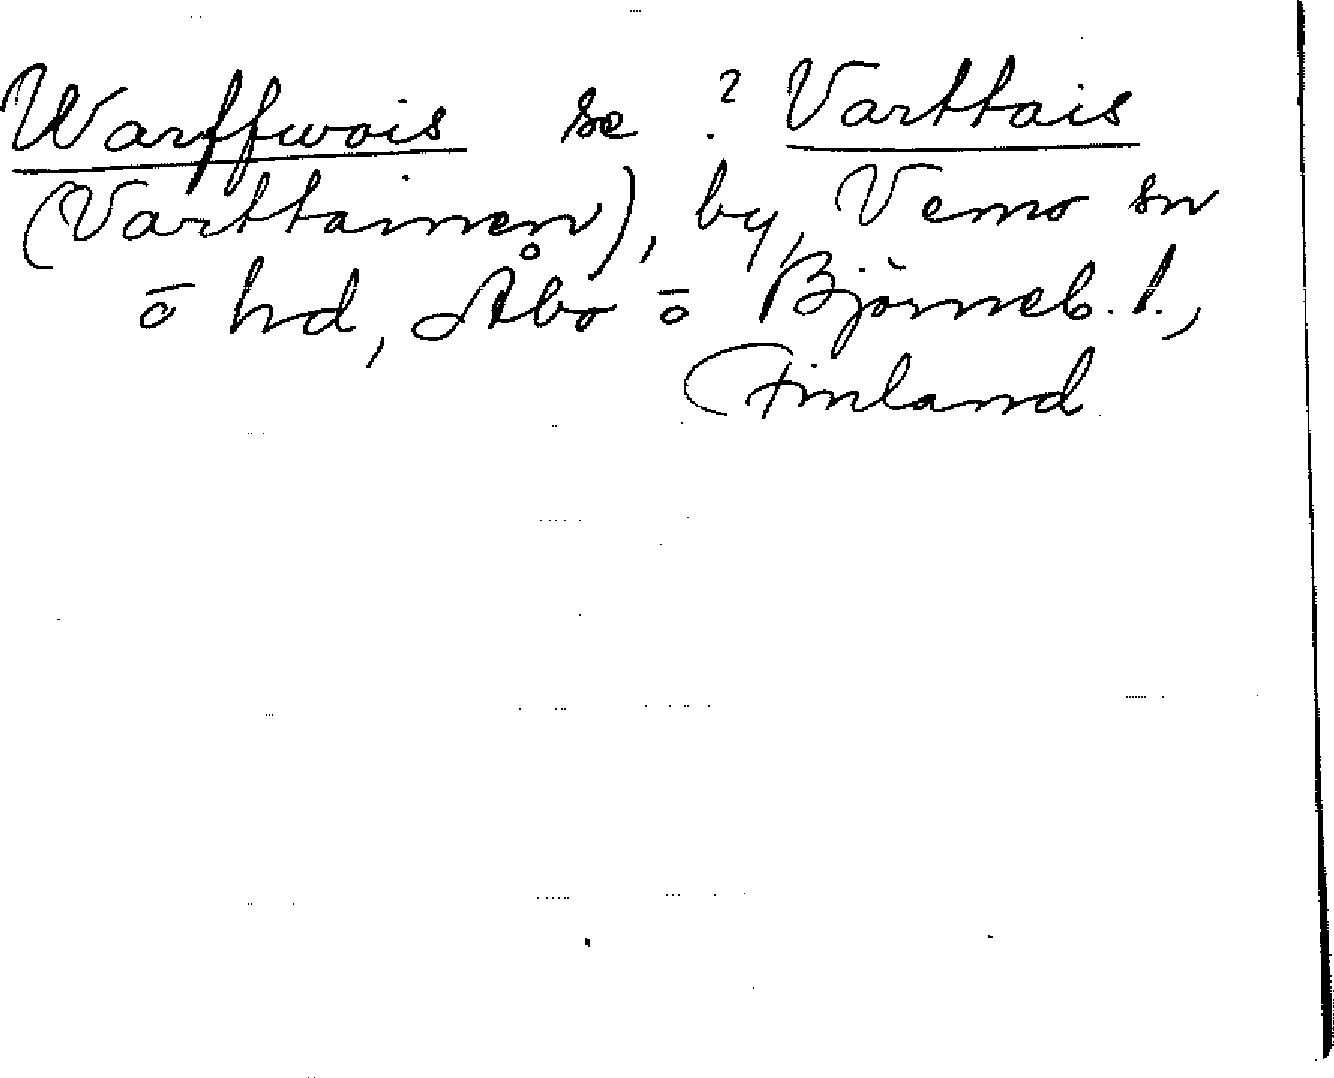 Warffwois se ? Varttais
(Varttainen), by, Vemo sn
o hd, Åbo o Björneb. l.,
Finland